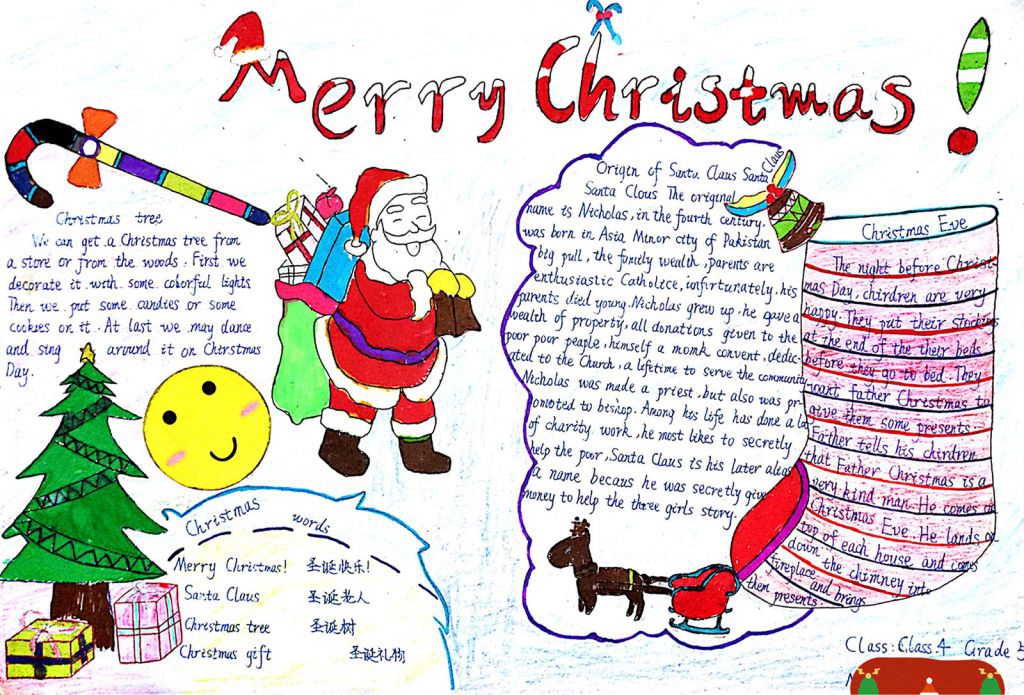 Merry Christmas!
Christmas tree
We can get a Christmas tree from
a store or from the woods. First we
decorate it with some colorful lights
Then we put some candies or some
cookies on it. At last we may dance
and sing around it on Christmas
Day.
Origin of Santa Claus Santa Claus
Santa Clous The original
name is Nicholas, in the fourth century,
was born in Asia Minor city of Pakistan
big pull, the family wealth, parents are
enthusiastic Catholice, unfirtunately, his
parents died young. Nicholas grew up, he gave a
wealth of property, all donations given to the
poor poor people, himself a momk convent, dedic-
ated to the Church, a lifetime to serve the community
Nicholas was made a priest, but also was pr-
omoted to bishop. Among his life has done a lot
of charity work, he most likes to secretly
help the poor, Santa Claus is his later alias
a name becaus he was secretly give
money to help the three girls story.
Christmas Eve
The night before Christ-
mas Day, chirdren are very
happy. They put their stockins
at the end of the their beds
before they go to bed. They
want father Christmas to
give them some presents.
Father tells his chirdren
that Father Christmas is a
very kind man. He comes on
Christmas Eve. He lands on
top of each house and
down the chimney into
fireplace and brings
them presents.
Christmas words
Merry Christmas! 圣诞快乐!
Santa Claus 圣诞老人
Christmas tree 圣诞树
Christmas gift 圣诞礼物
Class: Class 4 Grade 5